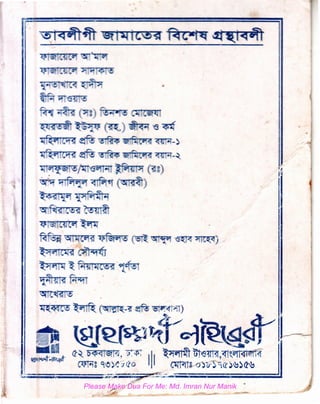 তাবলীগী জামাতের বিশেষ গ্রন্থাবলী
ফাজায়েলে আ'মাল
ফাজায়েলে সাদাকাত
মুনতাখাবে হাদীস
দ্বীনি দাওয়াত
বিশ্ব নবীর (সঃ) তিনশত মোজেযা
হযরতজী ইউসুফ (রহ.) জীবন ও কর্ম
মহিলাদের প্রতি তারিক জামিলের বয়ান-১
মহিলাদের প্রতি তারিক জামিলের বয়ান-২
মালফুজাত/মাওলানা ইলিয়াস (রঃ)
আদ দালিলুল বালিগ (আরবী)
ইকরামুল মুসলিমীন
আখিরাতের তৈয়ারী
ফাজায়েলে ইলম
বিভিন্ন আমলের ফজিলত (ভাই আব্দুল ওহাব সাহেব)
ইসলামের সৌন্দর্য্য
ইসলাম ই নিয়ামতের পূর্ণতা
দুনীয়ার নিন্দা
আখেরাত
মহব্বতে ইলাহি (আল্লাহ-র প্রতি ভালবাসা)
মোহাম্মদী লাইব্রেরী
৫২ চকবাজার, ঢাকা
ইসলামী টাওয়ার, বাংলাবাজার
ফোনঃ
মোবাঃ
Please Make Dua For Me: Md. Imran Nur Manik